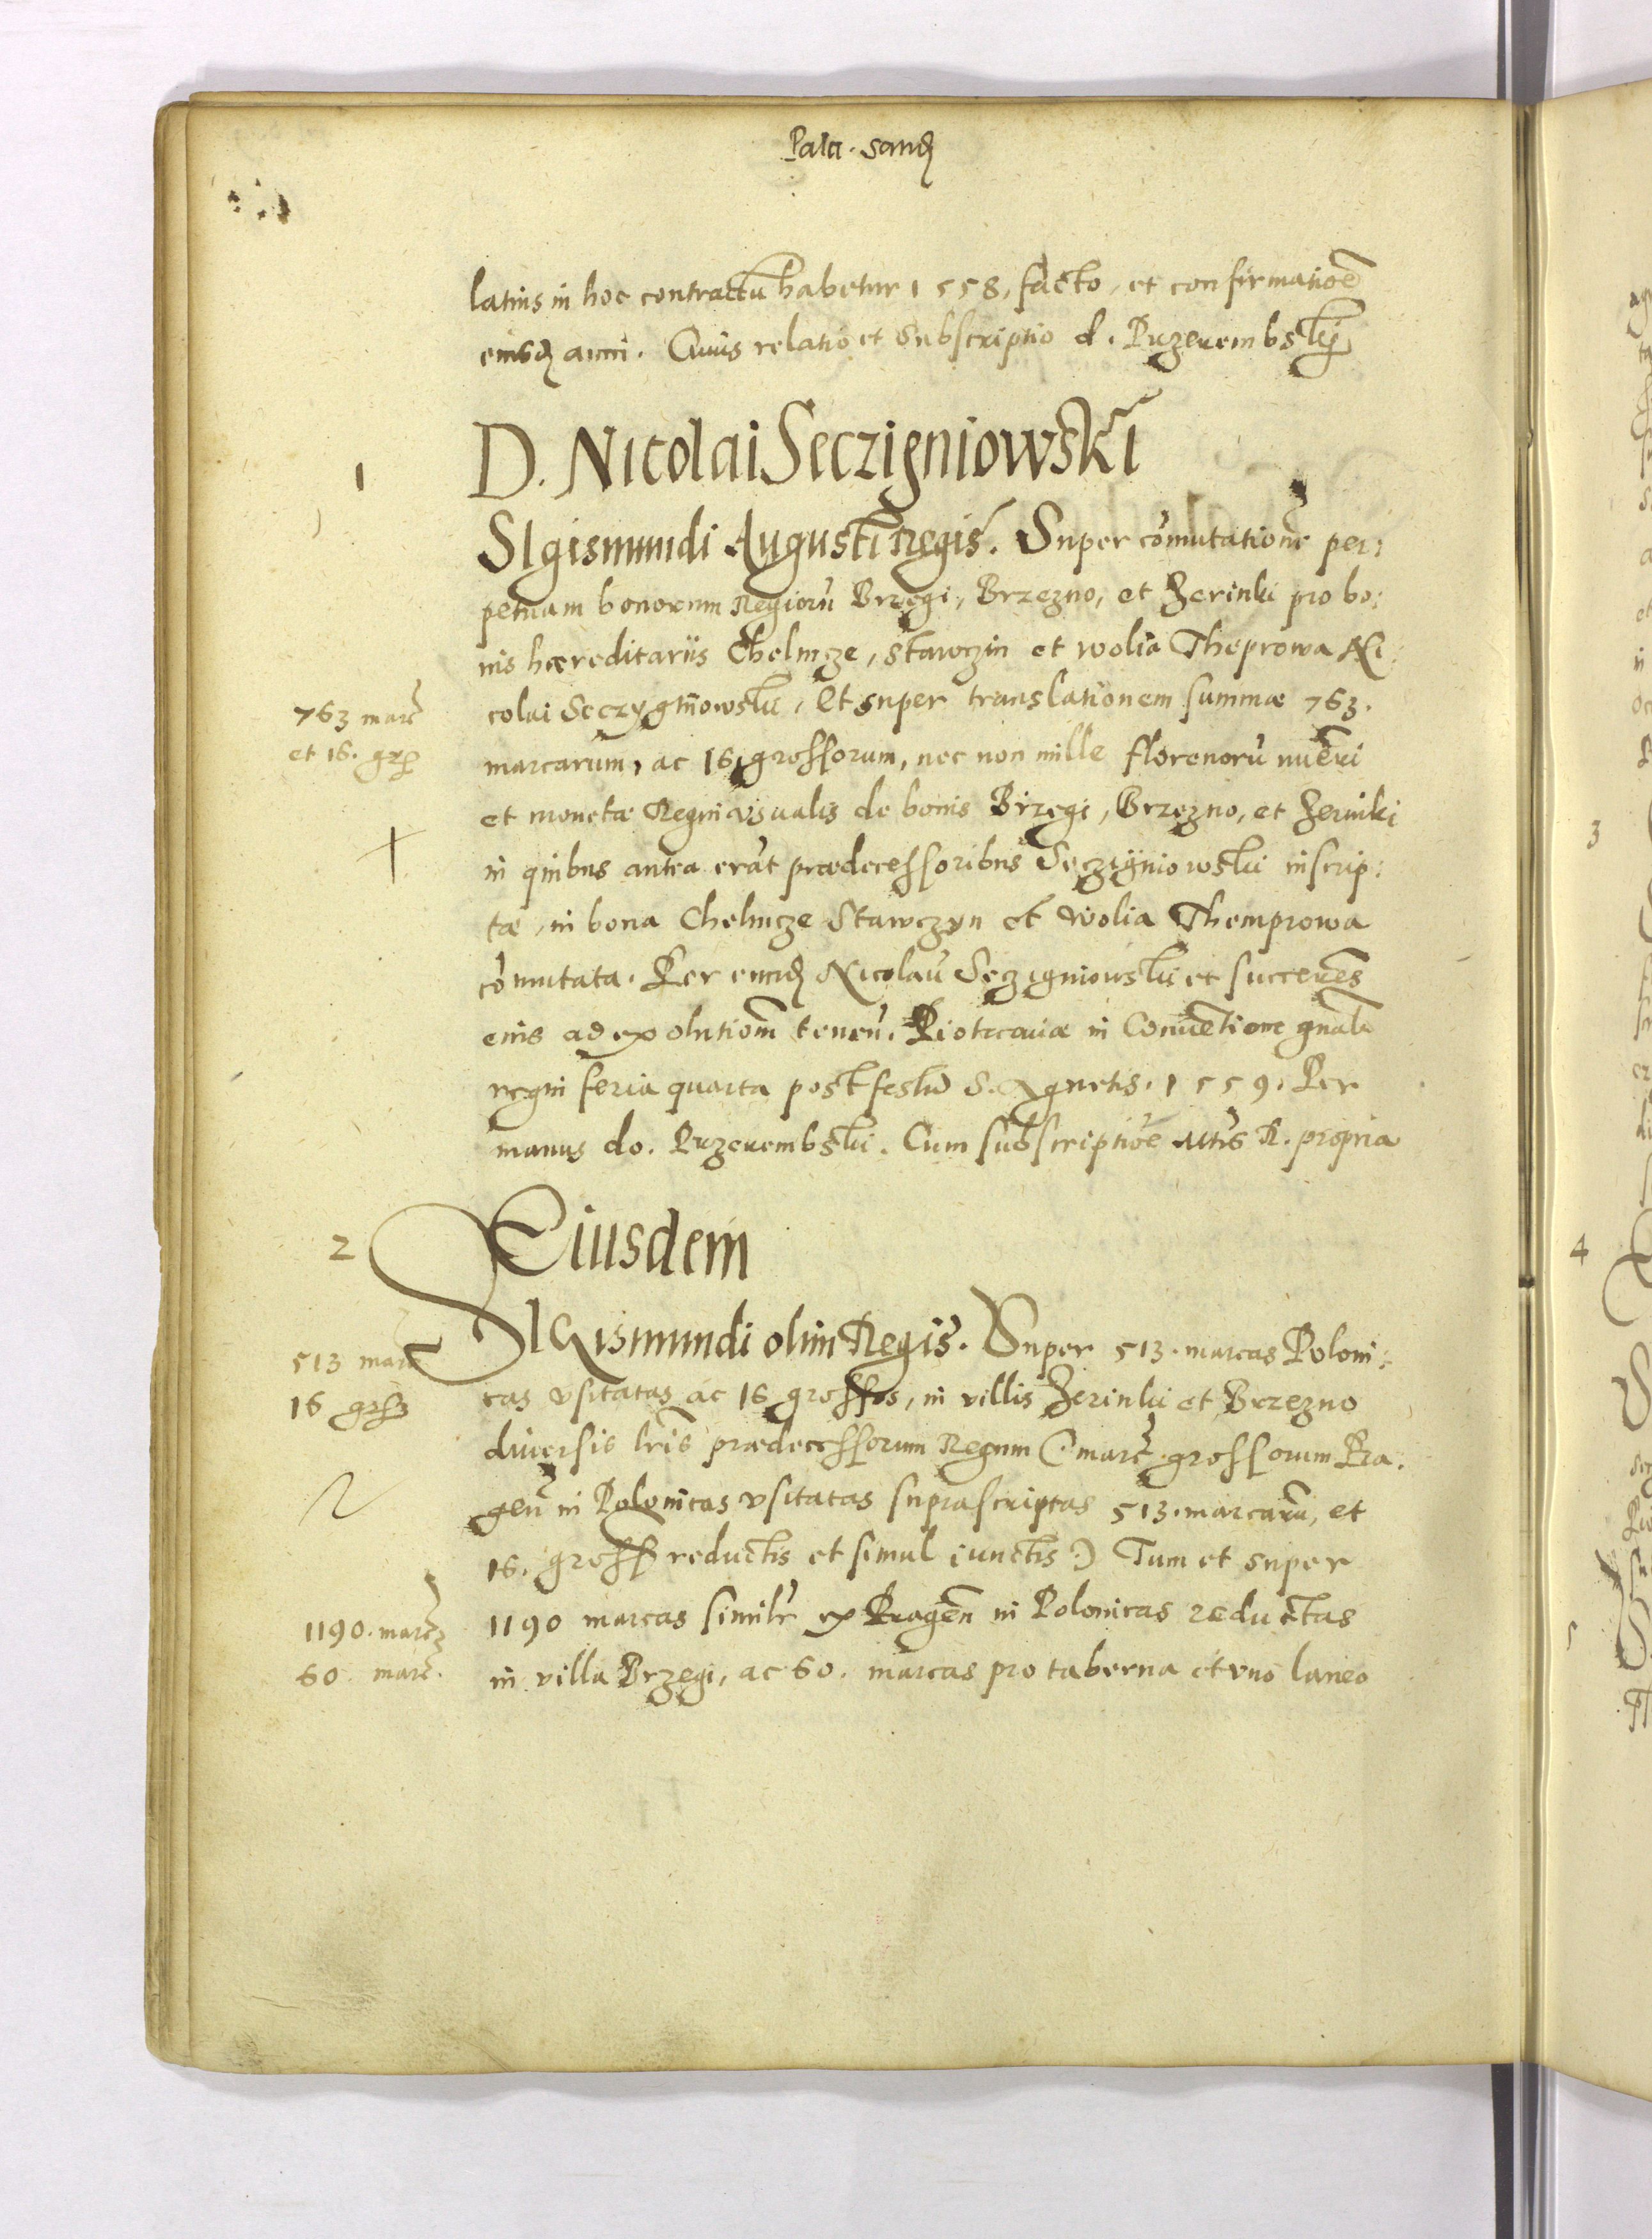 Pala. Sand
latius in hoc contractu habetur 1558, facto, et confirmatiōe
eiusdē anni. Cuius relatio et Subscriptio d. Przerembskÿ
1
D. Nicolai Seczigniowski
SIgismundi Augusti Regis. Super cōmutationē per:
petuam bonorum Regiorū Brzegi, Brzezno, et Zerinki pro bo:
nis hæreditariis Chelmcze, Stawczin et wolia Theprowa Ni:
colai Seczygniowski, Et super translationem summæ 763.
763 marc
et 16. gr
marcarum, ac 16, grossorum, nec non mille florenorū nūeri
et monetæ Regni usualis de bonis Brzegi, Brzezno, et Zerniki
in quibus antea erāt prædecessoribus Seczigniowski inscrip:
tæ, in bona Chelmcze Stawczyn et Wolia Themprowa
cōmutata. Per eundē Nicolaū Seczigniowski et succeores
eius ad exolutiōm tenen. Piotrcoviæ in Conuētione gnali
regni feria quarta post festū S. Agnetis. 1559. Per
manus do. Przerembski. Cum subscriptiōe Mtis R. propria
2
Eiusdem
SIGismundi olim Regis. Super 513. marcas Poloni:
513 marc
16 gross
cas usitatas ac 16 grossos, in villis Zerinki et Brzezno
diuersis lris prædecessorum Regum (: marc. grossorum Pra.
gen in Polonicas usitatas suprascriptas 513. marcarū, et
16. gross reductis et simul iunctis :) Tum et super
1190. marc
60. marc.
1190 marcas similr ex Pragen in Polonicas reductas
in villa Brzegi, ac 60. marcas pro taberna et uno laneo
3
4
5